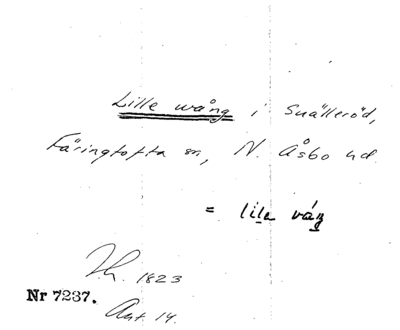 Lille wång i Snälleröd,
Färingtofta sn, N. Åsbo hd.
= lila váŋ
Th. 1823
Nr 7237.
Ant. 14.